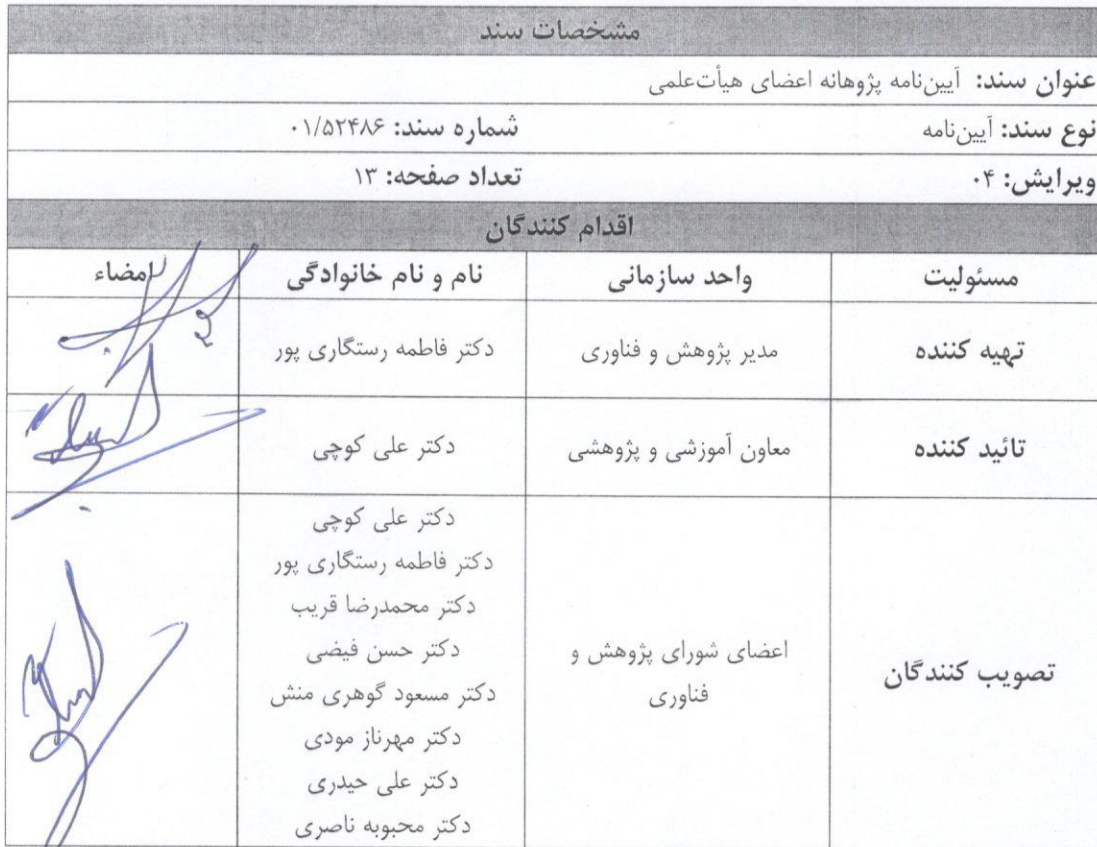 مشخصات سند
عنوان سند: آیین‌نامه پژوهانه اعضای هیأت‌علمی
نوع سند: آیین‌نامه شماره سند: ۰۱/۵۲۴۸۶
ویرایش: ۰۴ تعداد صفحه: ۱۳
اقدام کنندگان
مسئولیت واحد سازمانی نام و نام خانوادگی امضاء
تهیه کننده مدیر پژوهش و فناوری دکتر فاطمه رستگاری پور
تائید کننده معاون آموزشی و پژوهشی دکتر علی کوچی
تصویب کنندگان
اعضای شورای پژوهش و
فناوری
دکتر علی کوچی
دکتر فاطمه رستگاری پور
دکتر محمدرضا قریب
دکتر حسن فیضی
دکتر مسعود گوهری منش
دکتر مهرناز مودی
دکتر علی حیدری
دکتر محبوبه ناصری